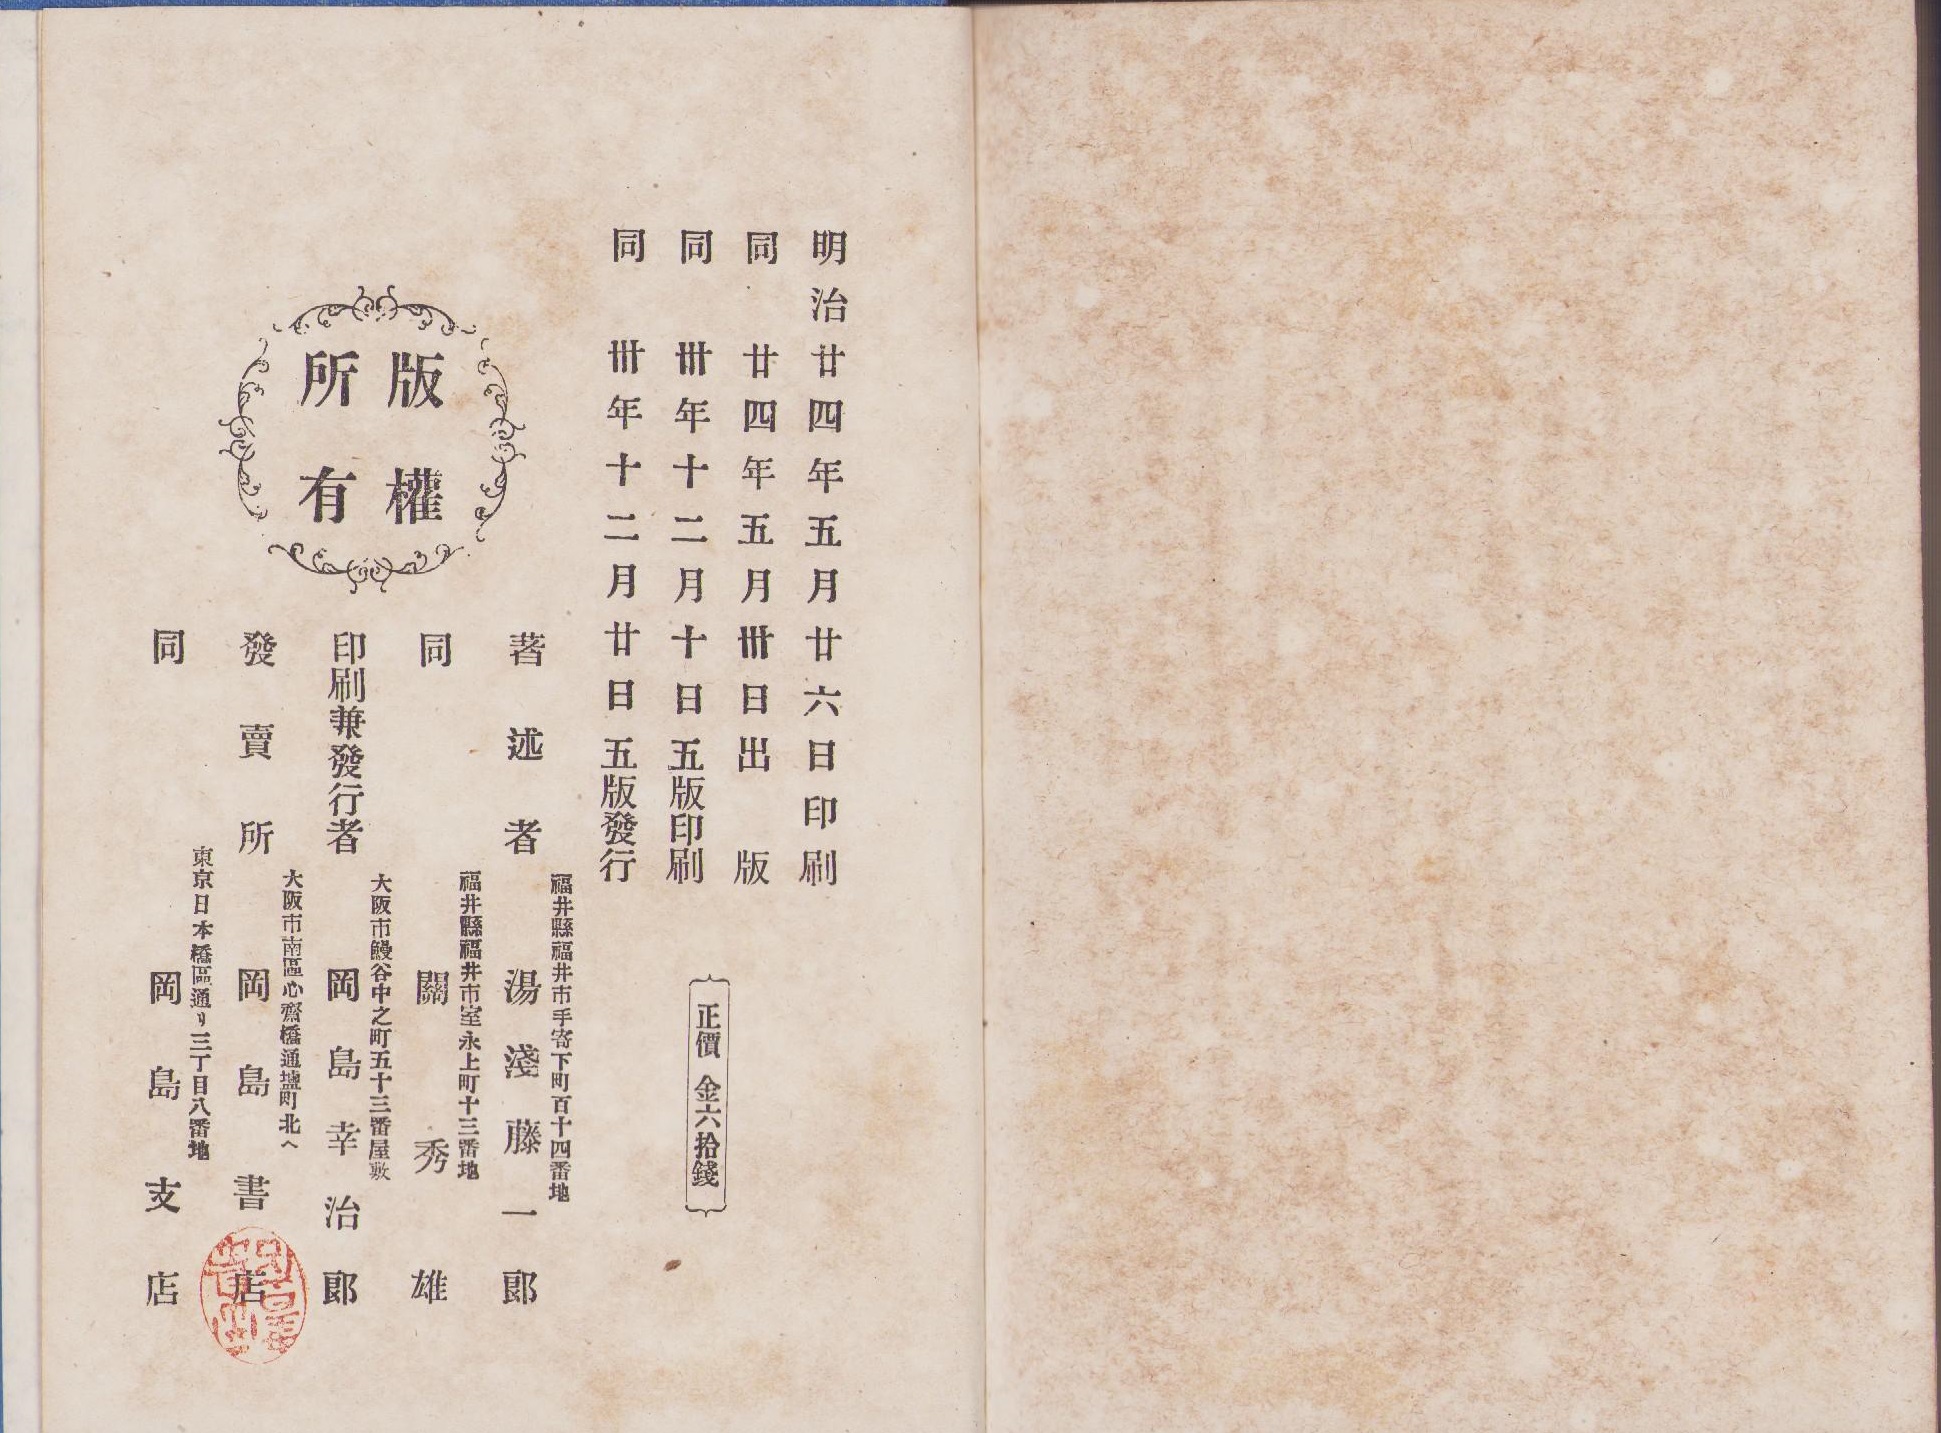 明治廿四年五月廿六日印刷
同廿四年五月卅日出版
同卅年十二月十日五版印刷
同卅年十二月廿日五版發行
正價 金六拾錢
福井縣福井市手寄下町百十四番地
著述者 湯淺藤一郎
福井縣福井市室永上町十三番地
同 關秀雄
大阪市鰻谷中之町五十三番屋敷
印刷兼發行者 岡島幸治郎
大阪市南區心齋橋通塩町北ヘ
發賣所 岡島書店
東京日本橋區通リ三丁目八番地
同 岡島支店
版權
所有